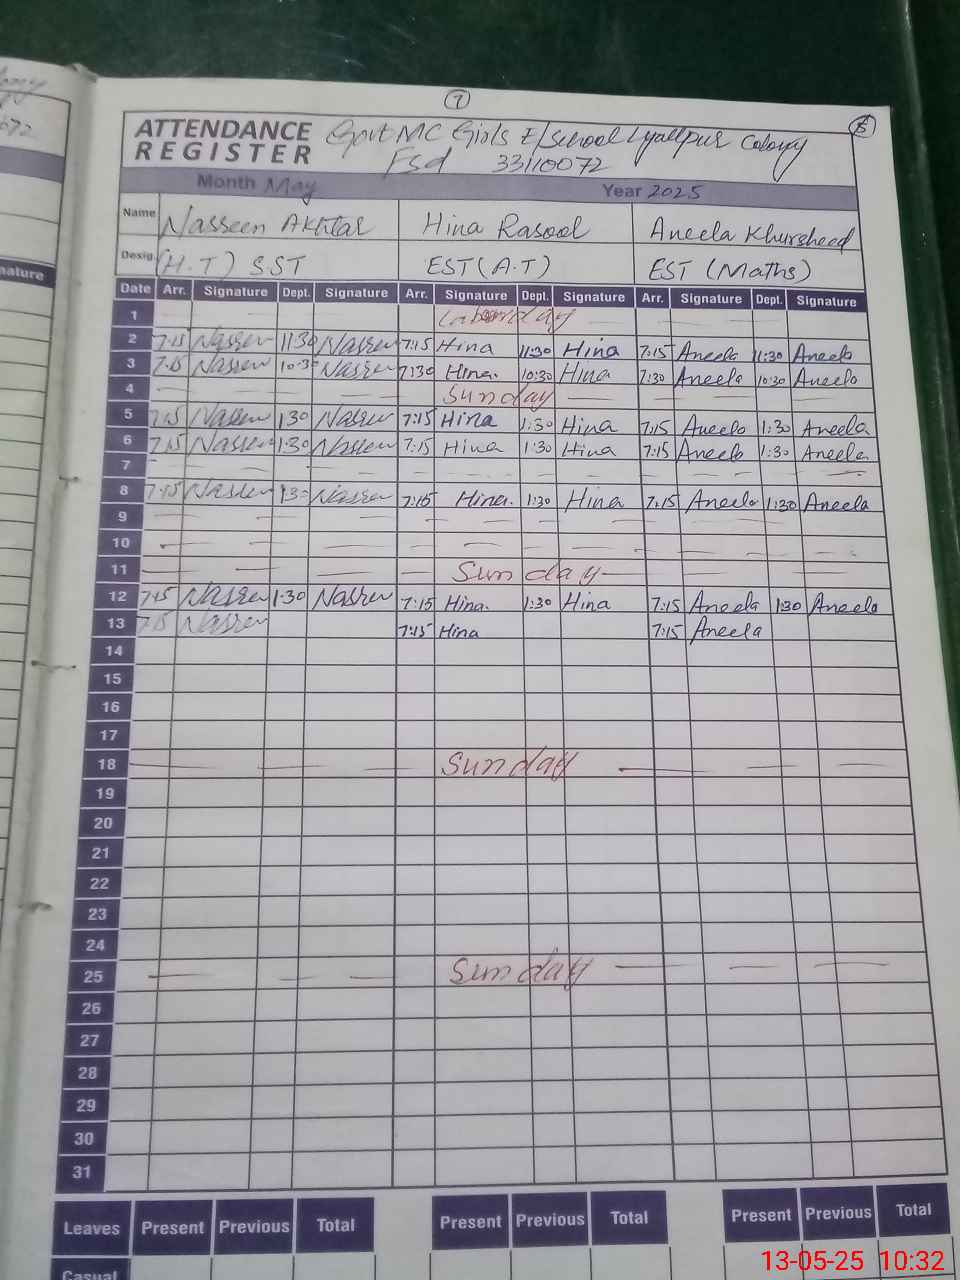 7
5
ATTENDANCE REGISTER Govt MC Girls E/School Lyallpur Colony
Fsd 33110072
Month May Year 2025
Name Nasreen Akhtar Hina Rasool Aneela Khursheed
Desig. (H.T) SST EST (A.T) EST (Maths)
Date Arr. Signature Dept. Signature Arr. Signature Dept. Signature Arr. Signature Dept. Signature
1 Labour day
2 7:15 Nasreen 11:30 Nasreen 7:15 Hina 11:30 Hina 7:15 Aneela 11:30 Aneela
3 7:15 Nasreen 10:30 Nasreen 7:30 Hina. 10:30 Hina 7:30 Aneela 10:30 Aneela
4 Sunday
5 7:15 Nasreen 1:30 Nasreen 7:15 Hina 1:30 Hina 7:15 Aneela 1:30 Aneela
6 7:15 Nasreen 1:30 Nasreen 7:15 Hina 1:30 Hina 7:15 Aneela 1:30 Aneela
7
8 7:15 Nasreen 1:30 Nasreen 7:15 Hina. 1:30 Hina 7:15 Aneela 1:30 Aneela
9
10
11 Sunday
12 7:15 Nasreen 1:30 Nasreen 7:15 Hina. 1:30 Hina 7:15 Aneela 1:30 Aneela
13 7:15 Nasreen 7:15 Hina 7:15 Aneela
14
15
16
17
18 Sunday
19
20
21
22
23
24
25 Sunday
26
27
28
29
30
31
Leaves Present Previous Total Present Previous Total Present Previous Total
Casual
13-05-25 10:32